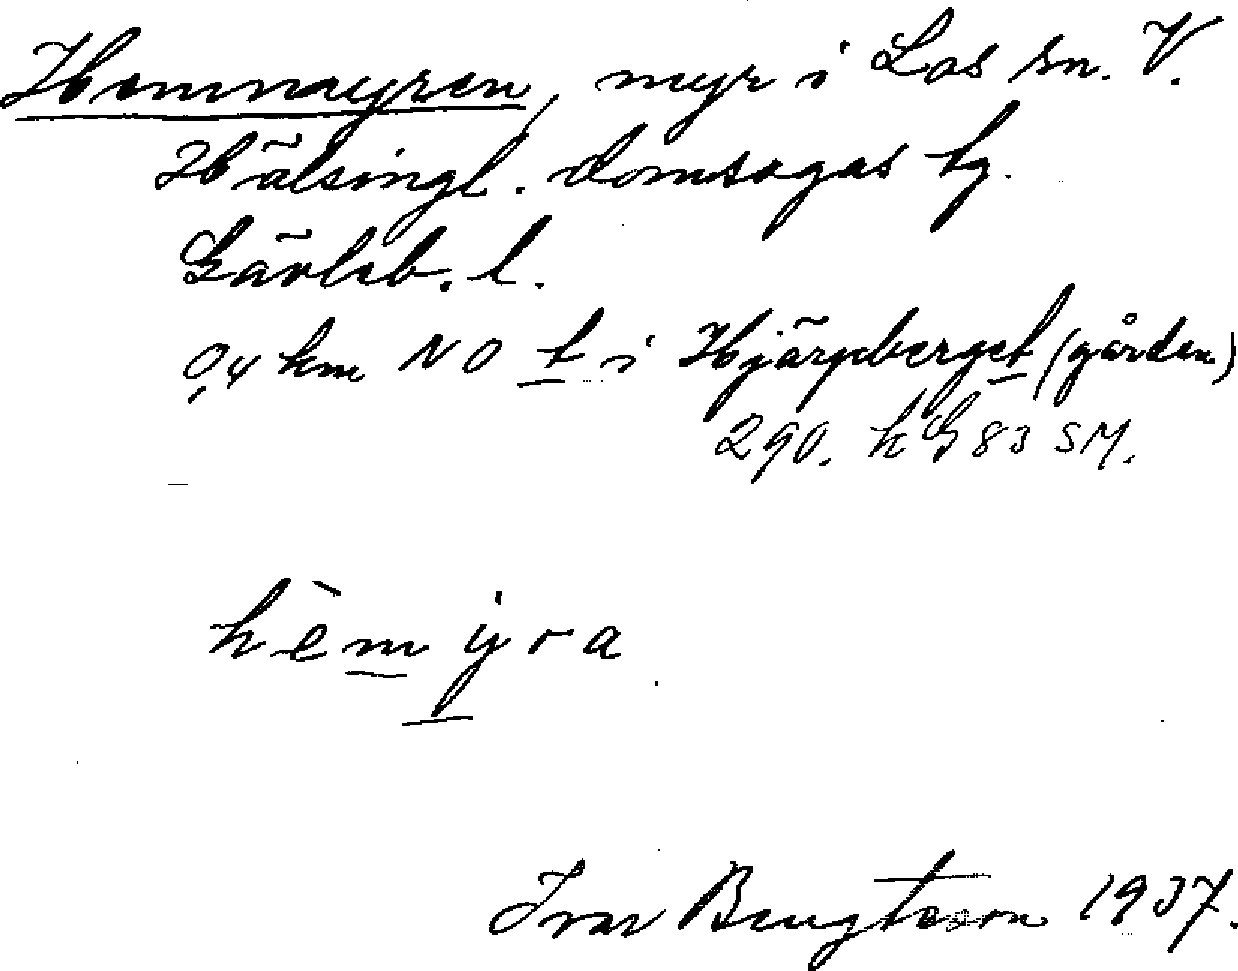 Hemmyren, myr i Los sn. V.
Hälsingl. domsagas tg.
Gävleb. l.
0,4 km NO t i Hjärpberget (gården)
290. kG 83 SM.
hèm ýra
Ivar Bengtsson 1937.